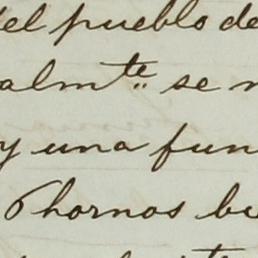 del pueblo de
almte se
y una fun
Phornos bu